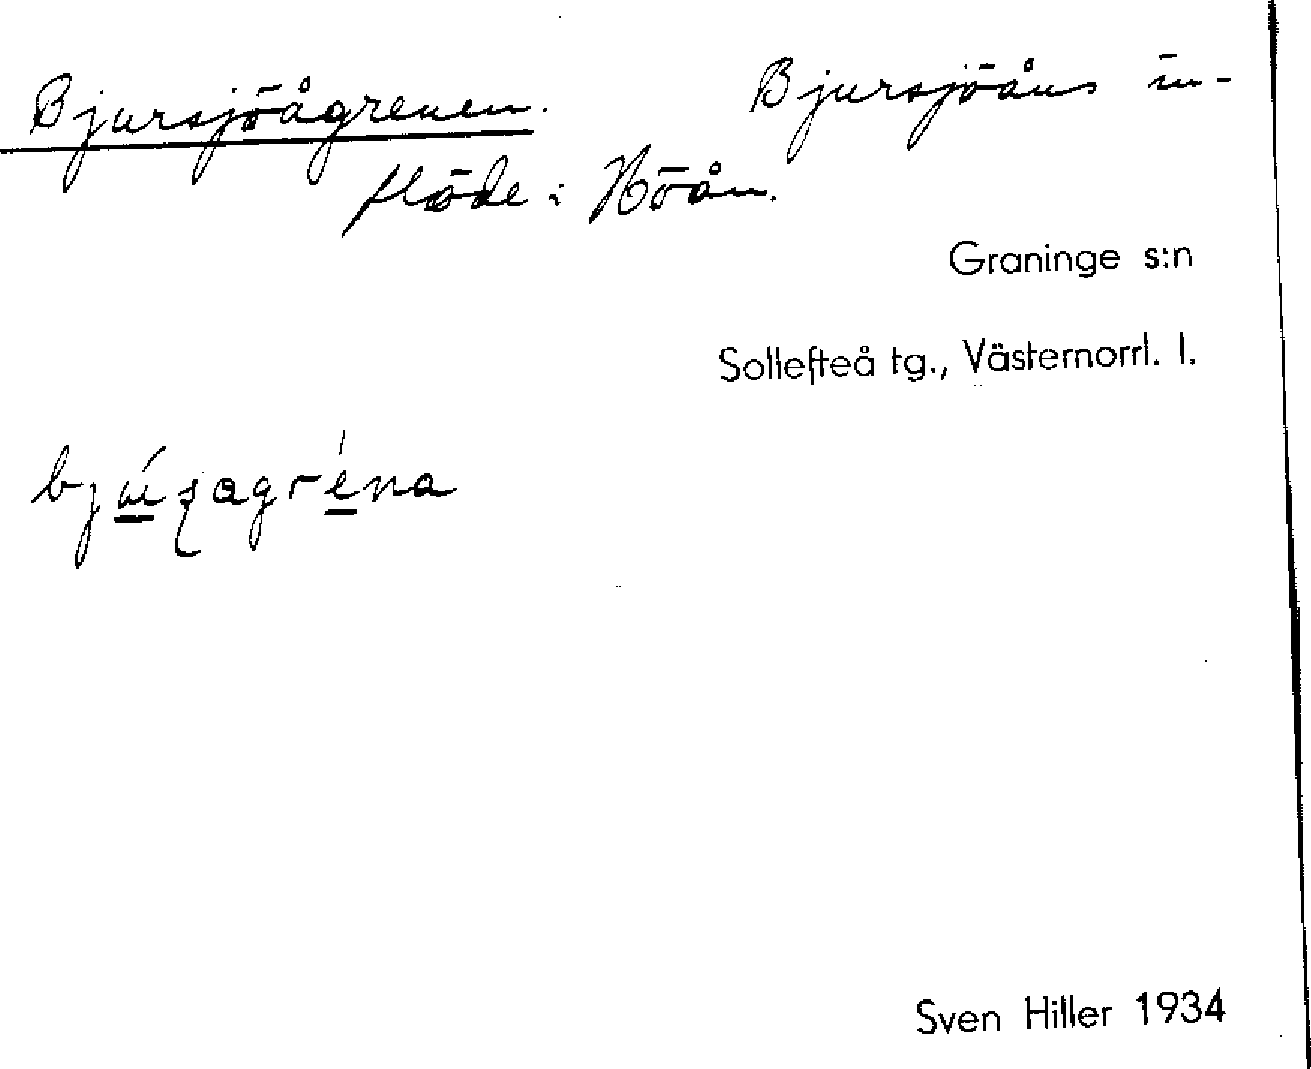 Bjursjöågrenen. Bjursjöåns in-
flöde i Höån.
Graninge s:n
Sollefteå tg., Västernorrl. l.
Sven Hiller 1934